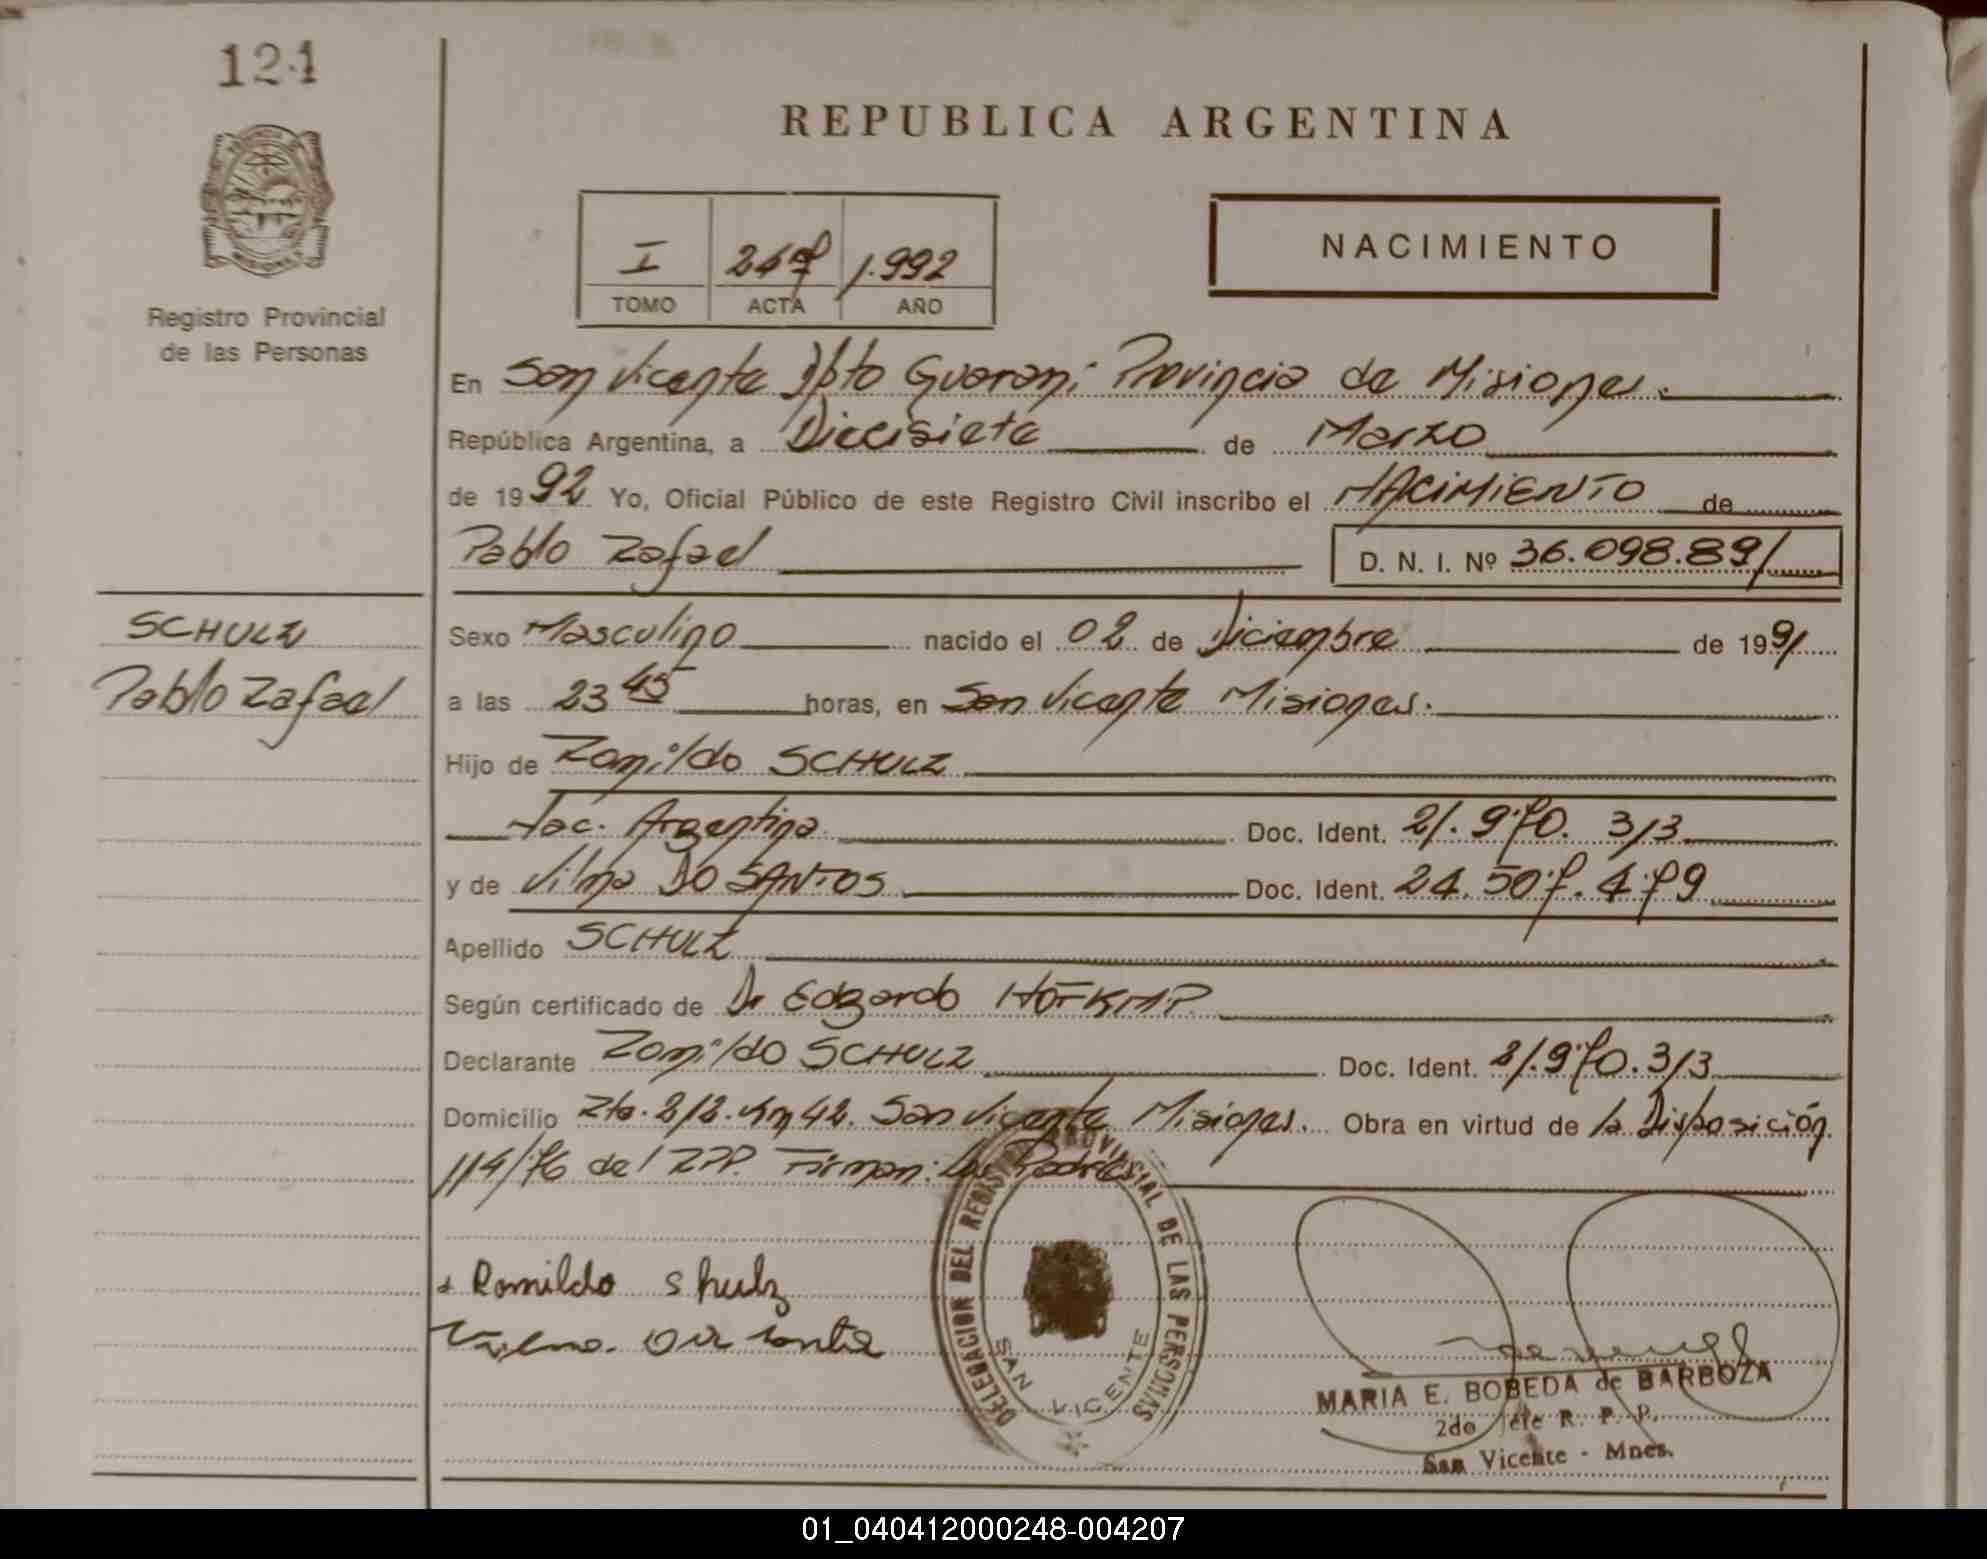 121
REPUBLICA ARGENTINA
NACIMIENTO
I 247 1.992
TOMO ACTA AÑO
Registro Provincial
de las Personas
En San Vicente Dpto Guaraní Provincia de Misiones.
República Argentina, a Diecisiete de Marzo
de 1992 Yo, Oficial Público de este Registro Civil inscribo el NACIMIENTO de
Pablo Rafael D. N. I. Nº 36.098.891
SCHULZ
Pablo Rafael
Sexo Masculino nacido el 02 de Diciembre de 1991
a las 23 45 horas, en San Vicente Misiones.
Hijo de Romildo SCHULZ
Nac. Argentina Doc. Ident. 21.970.313
y de Vilma DO SANTOS Doc. Ident. 24.507.479
Apellido SCHULZ
Según certificado de Dr Edgardo
Declarante Romildo SCHULZ Doc. Ident. 21.970.313
Domicilio Rta. 212. Km 42. San Vicente Misiones. Obra en virtud de la Disposición
114/76 del RPP. Firman: los Padres
Romildo Shulz
DELEGACION DEL REGISTRO PROVINCIAL DE LAS PERSONAS
SAN VICENTE
MARIA E. BOBEDA de BARBOZA
2do Jefe R. P. P.
San Vicente - Mnes.
01_040412000248-004207